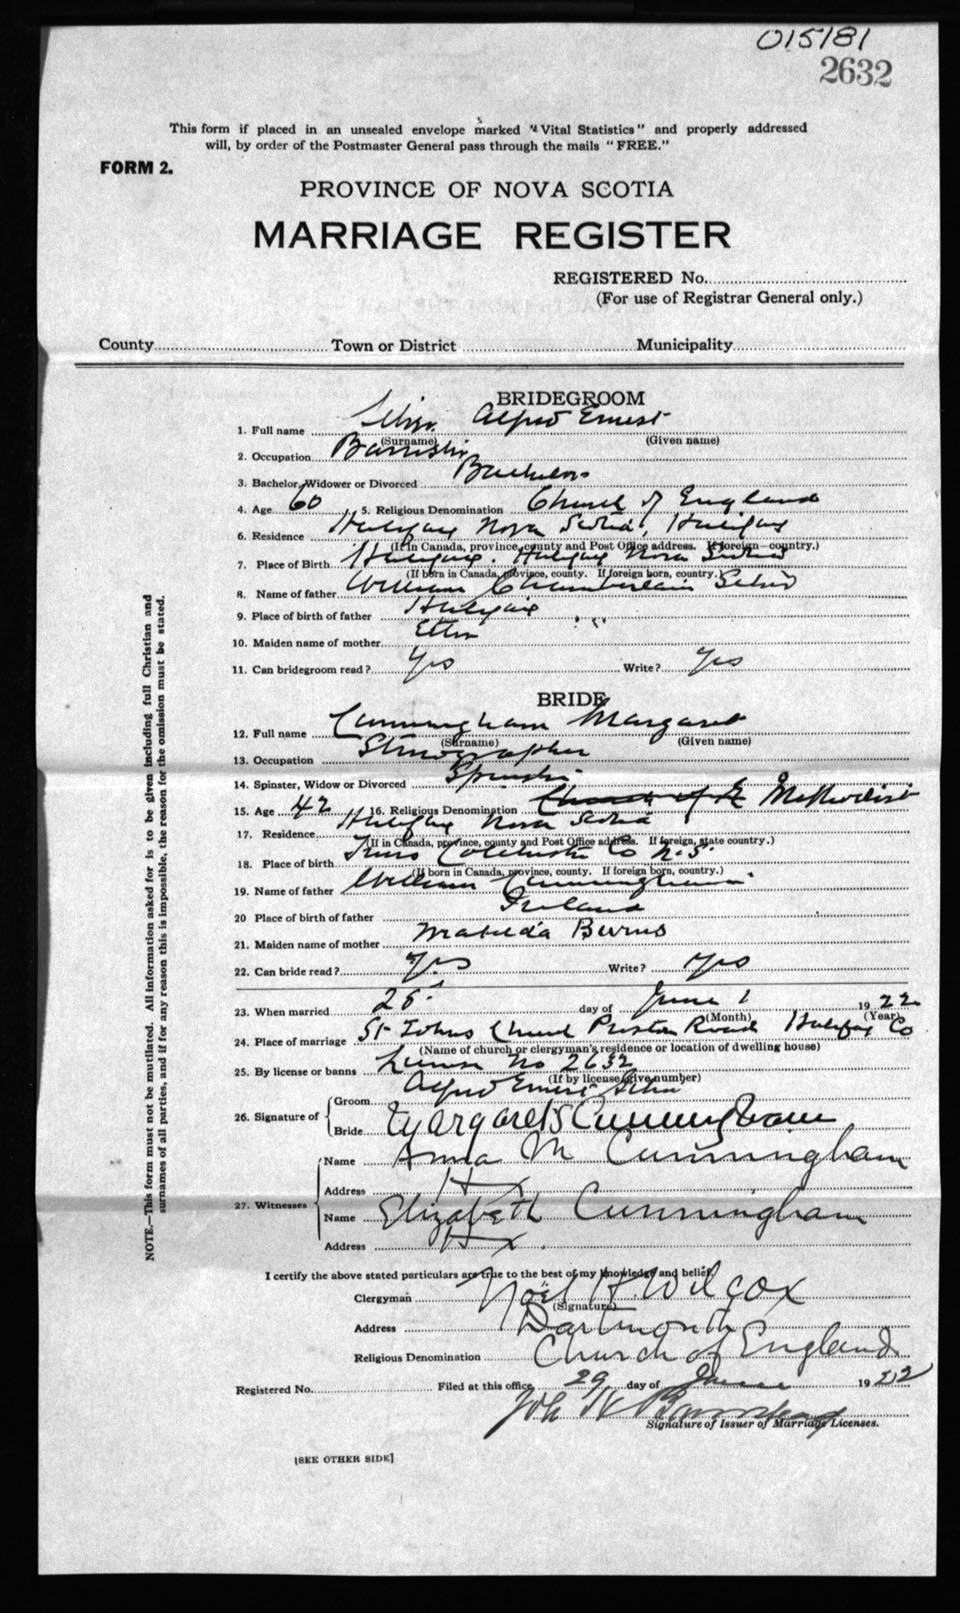 015181
2632
This form if placed in an unsealed envelope marked "Vital Statistics" and properly addressed
will, by order of the Postmaster General pass through the mails "FREE."
FORM 2.
PROVINCE OF NOVA SCOTIA
MARRIAGE REGISTER
REGISTERED No.
(For use of Registrar General only.)
County Town or District Municipality
BRIDEGROOM
1. Full name Silver Alfred Ernest
(Surname) (Given name)
2. Occupation Barrister
3. Bachelor, Widower or Divorced Bachelor
4. Age 60 5. Religious Denomination Church of England
6. Residence Halifax Nova Scotia, Halifax
(If in Canada, province, county and Post Office address. If foreign—country.)
7. Place of Birth Halifax. Halifax Nova Scotia
(If born in Canada, province, county. If foreign born, country.)
8. Name of father William Chamberlain Silver
9. Place of birth of father Halifax
10. Maiden name of mother
11. Can bridegroom read? Yes Write? Yes
BRIDE
12. Full name Cunningham Margaret
(Surname) (Given name)
13. Occupation Stenographer
14. Spinster, Widow or Divorced Spinster
15. Age 42 16. Religious Denomination Church of E Methodist
17. Residence Halifax Nova Scotia
(If in Canada, province, county and Post Office address. If foreign, state country.)
18. Place of birth Truro Colchester Co N.S.
(If born in Canada, province, county. If foreign born, country.)
19. Name of father William Cunningham
20 Place of birth of father Ireland
21. Maiden name of mother Matilda Burns
22. Can bride read? Yes Write? Yes
23. When married 28 day of June 1922
(Month) (Year)
24. Place of marriage St Johns Church Preston Road Halifax Co
(Name of church or clergyman's residence or location of dwelling house)
25. By license or banns License No 2632
(If by license, give number)
26. Signature of Groom Alfred Ernest Silver
Bride Margaret S Cunningham
27. Witnesses Name Anna M Cunningham
Address Hx
Name Elizabeth Cunningham
Address Hx.
I certify the above stated particulars are true to the best of my knowledge and belief.
Clergyman Noel H. Wilcox
(Signature)
Address Dartmouth
Religious Denomination Church of England
Registered No. Filed at this office 29 day of June 1922
Signature of Issuer of Marriage Licenses.
[SEE OTHER SIDE]
NOTE.—This form must not be mutilated. All information asked for is to be given including full Christian and
surnames of all parties, and if for any reason this is impossible, the reason for the omission must be stated.